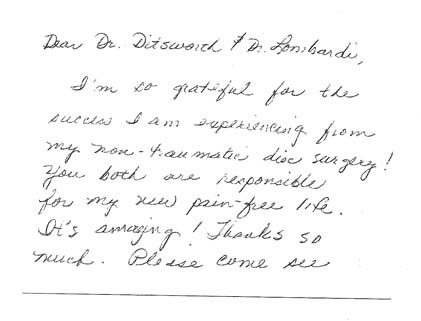 Dear Dr. Ditsworth & Dr. Lombardi,
I'm so grateful for the
success I am experiencing from
my non-traumatic disc surgery!
You both are responsible
for my new pain-free life.
It's amazing! Thanks so
much. Please come see